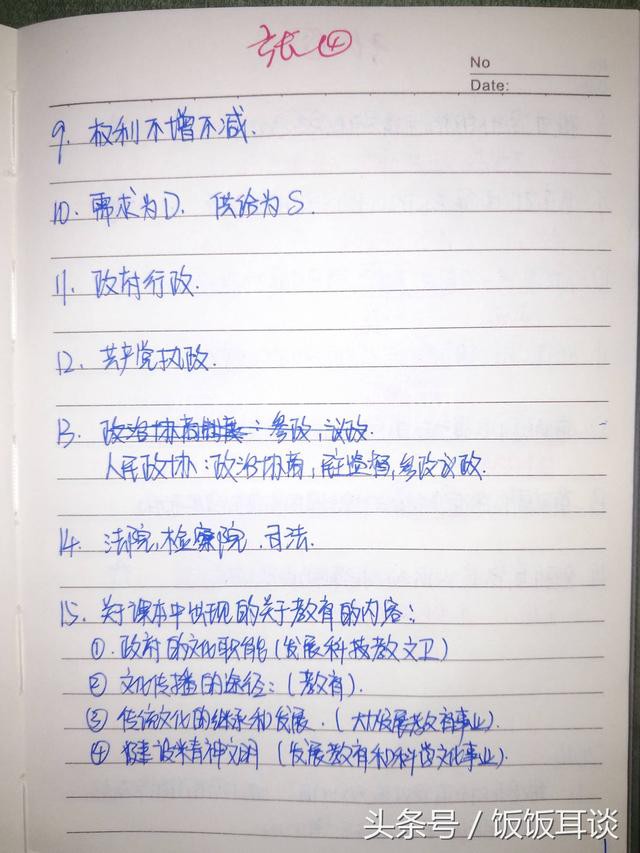 张④
No
Date:
9. 权利不增不减.
10. 需求为D. 供给为S.
11. 政府行政.
12. 共产党执政.
13. 政治协商制度:参政,议政.
人民政协:政治协商,民主监督,参政议政.
14. 法院,检察院.司法.
15. 关于课本中出现的关于教育的内容:
①.政府的文化职能(发展科技教文卫)
② 文化传播的途径:(教育).
③ 传统文化的继承和发展.(大力发展教育事业).
④ 建设精神文明(发展教育和科学文化事业).
头条号 / 饭饭耳谈